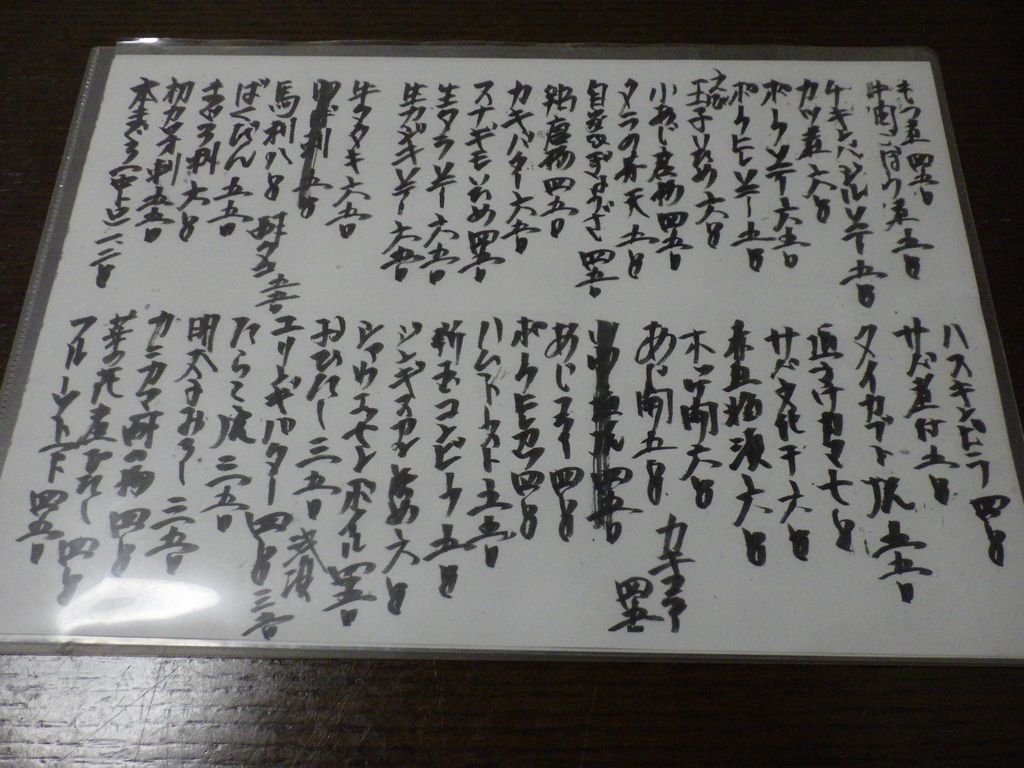 もつ煮 四五〇
牛肉ごぼう煮 五五〇
カツ煮 六〇〇
ポークソテー 六五〇
ポークヒレソテー 五五〇
玉子いため 六〇〇
小あじ唐揚 四五〇
タラの芽天 五〇〇
自家製ぎょうざ 四五〇
鶏唐揚 四五〇
カキバター 六五〇
スナギモいため 四五〇
生タラソテー 六五〇
生カキソテー 六五〇
牛タタキ 六五〇
馬刺 八〇〇
ばくだん 五五〇
まぐろ刺 六〇〇
初カツオ刺 五五〇
本まぐろ(中トロ) 一、二〇〇
ハスキンピラ 四〇〇
サバ煮付 五〇〇
タイカブト 五五〇
サバ文化干 六〇〇
赤魚粕漬 六〇〇
ホッケ開 六〇〇
あじ開 五〇〇
カキフライ 四五〇
あじフライ 四〇〇
ポークヒレカツ 四〇〇
ハムトースト 五五〇
新玉コンビーフ 五〇〇
ジンギスカンいため 六〇〇
シャウエッセンボイル 四五〇
おひたし 三五〇
エリンギバター 四〇〇
たらこ 三五〇
明太子おろし 三五〇
カニカマ酢の物 四〇〇
菜の花煮びたし 四〇〇
フルーツトマト 四五〇